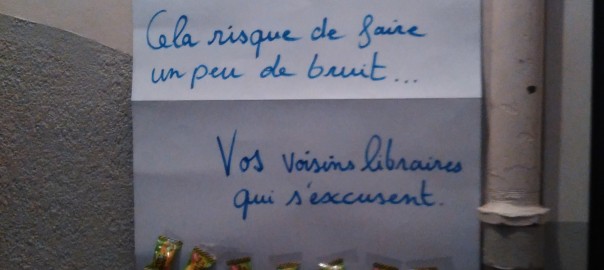 Cela risque de faire
un peu de bruit...
Vos voisins libraires
qui s'excusent.